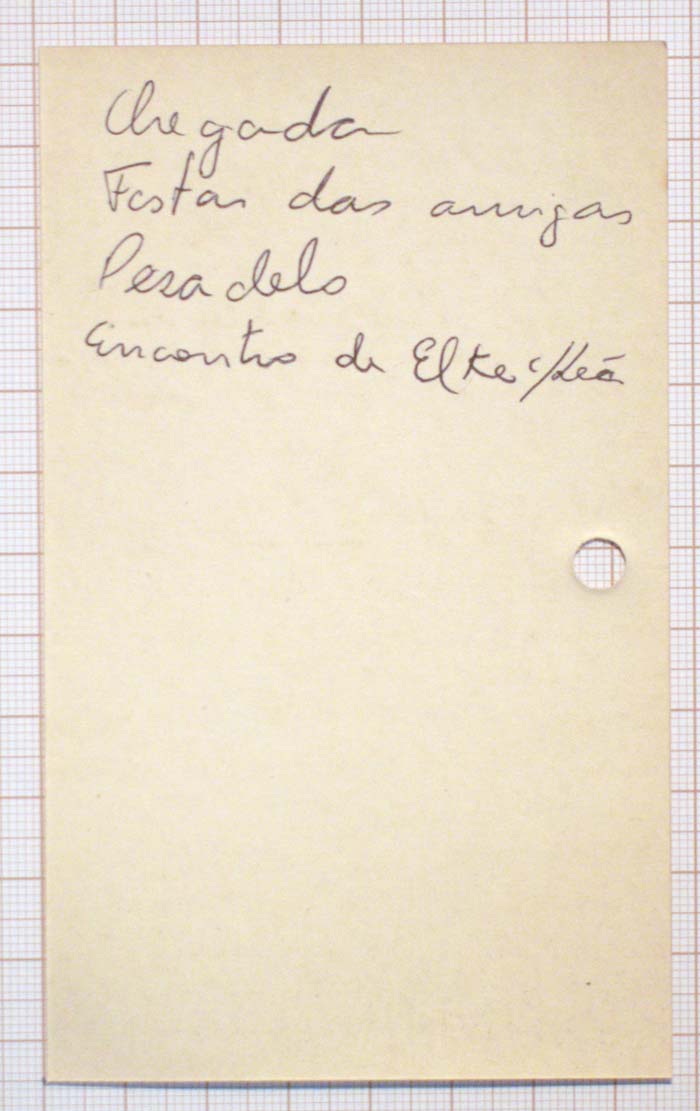 Chegada
Festas das amigas
Pesadelo
Encontro de Elke c/Leo